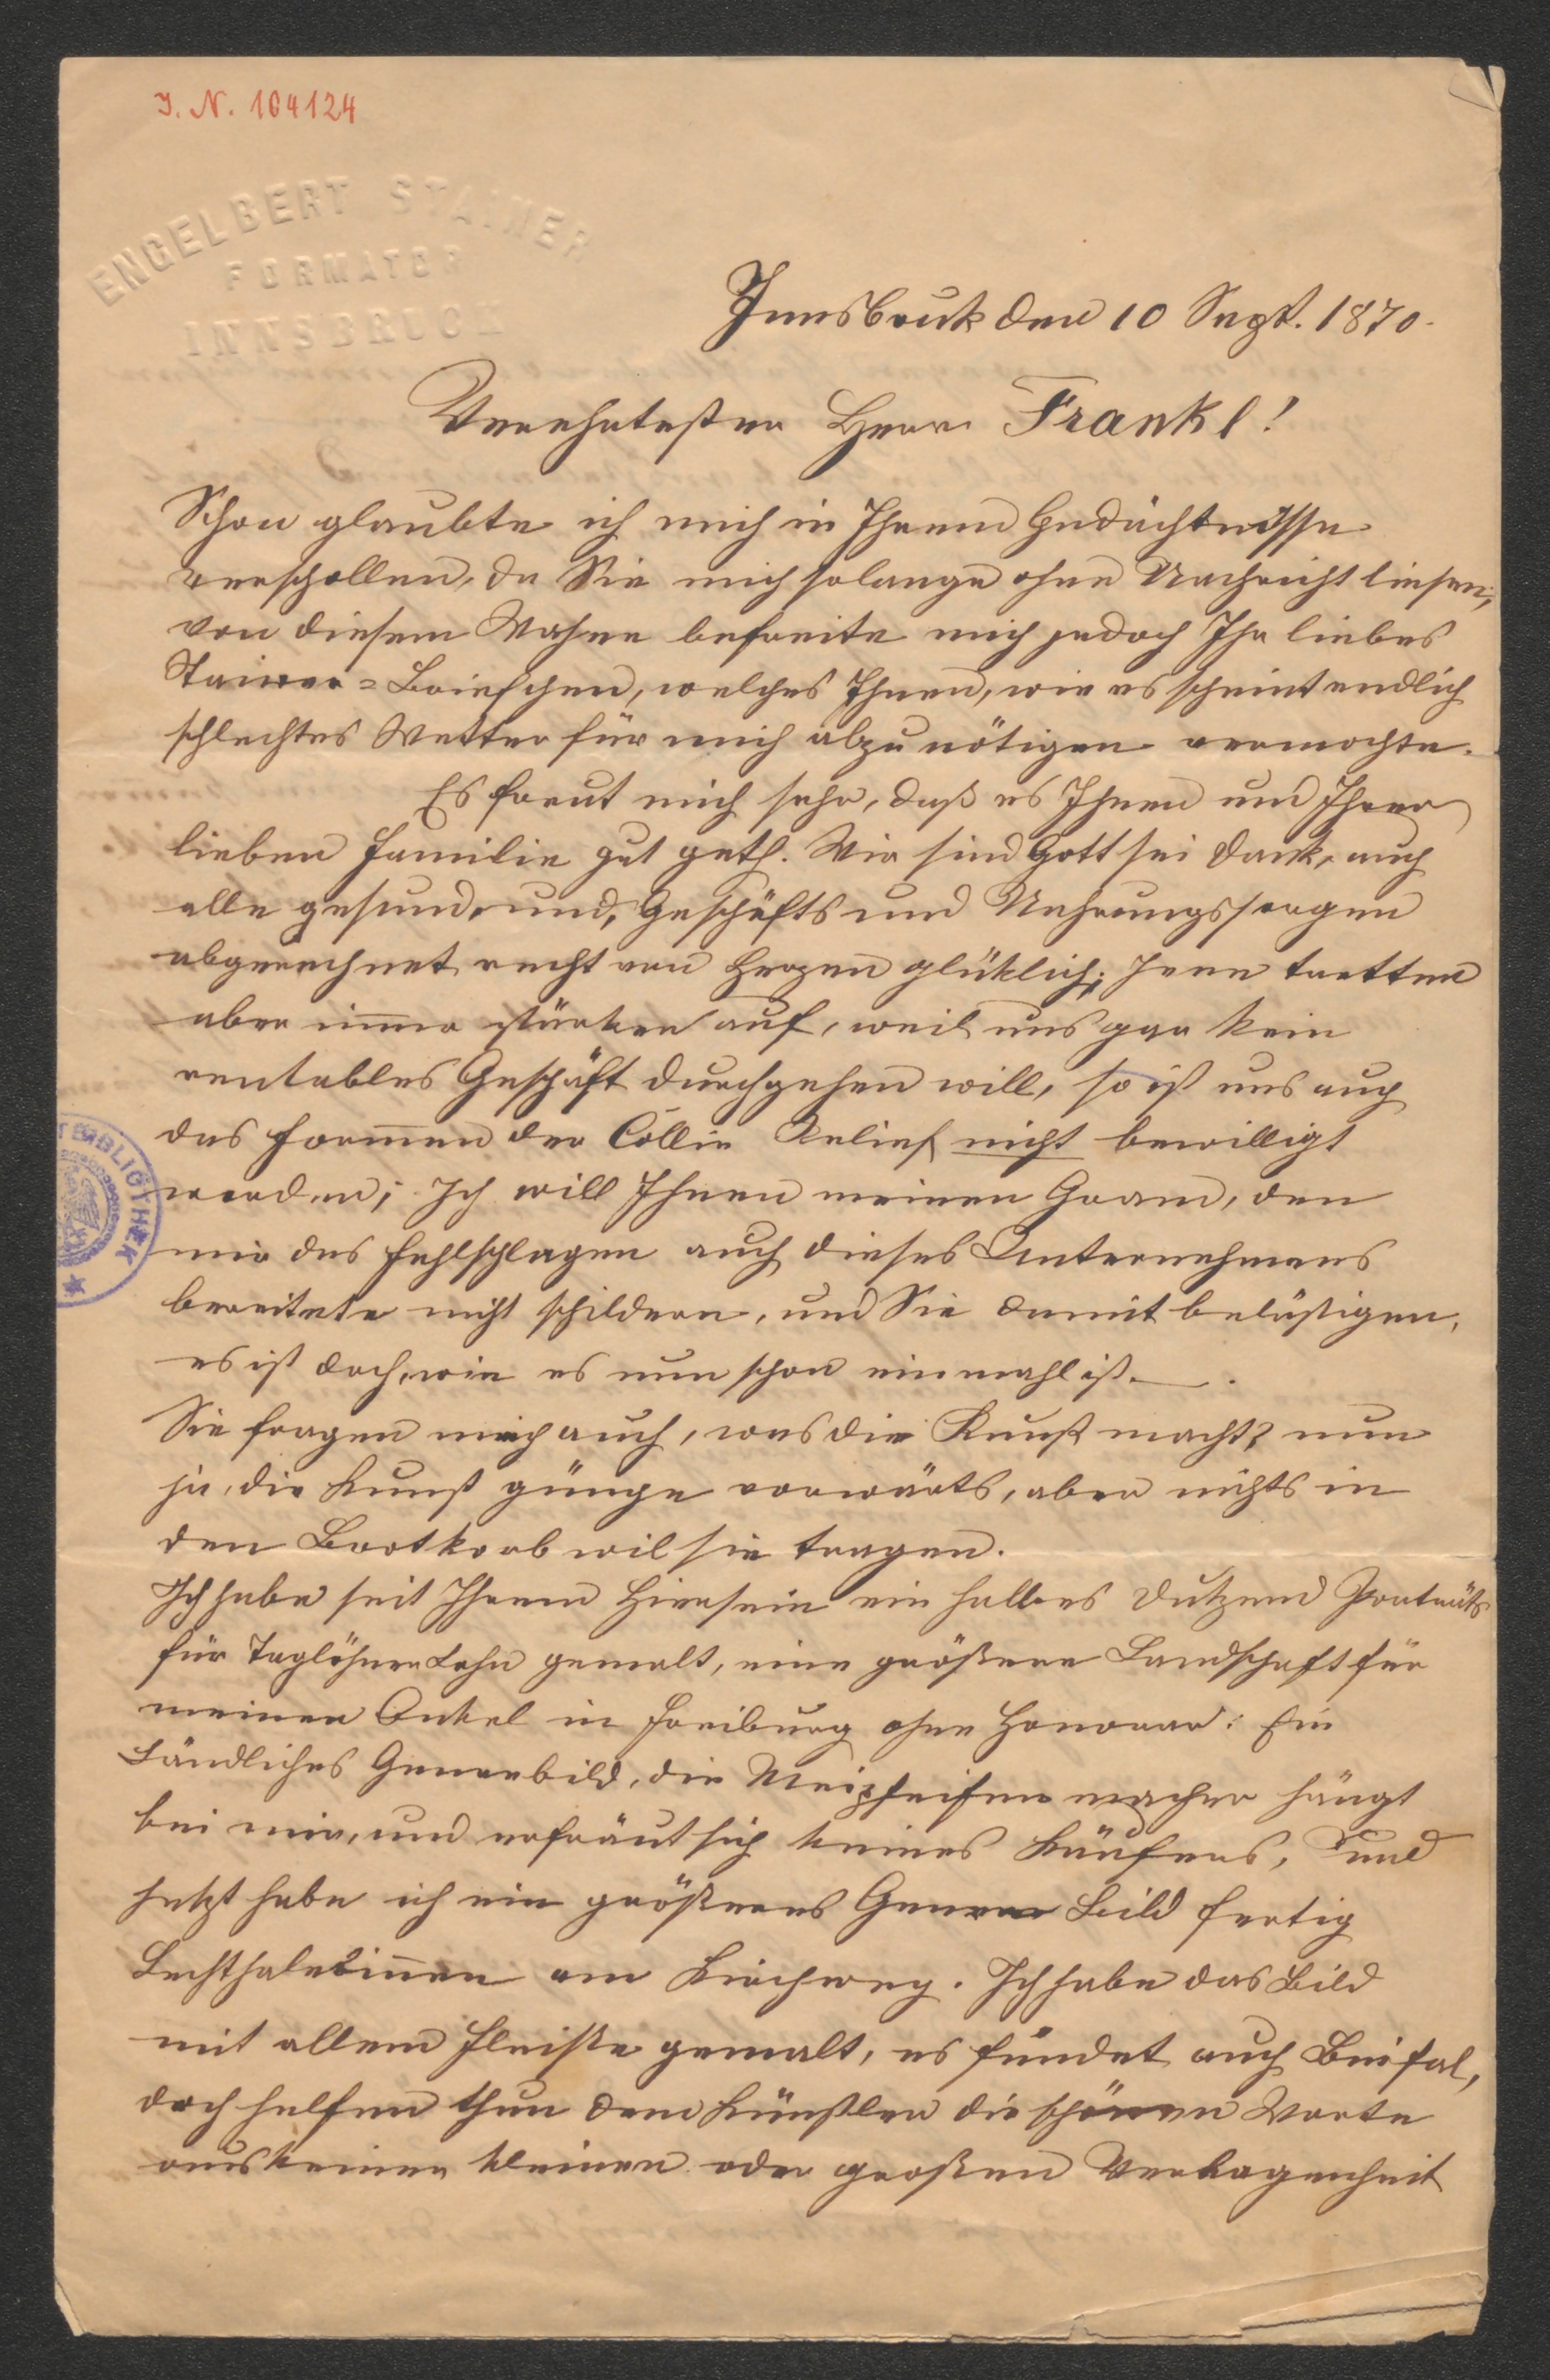 I. N. 104124
ENGELBERT STAINER
FORMATOR
INNSBRUCK
Innsbruk den 10 Sept. 1870.
Verehrtester Herr Frankl!
Schon glaubte ich mich in Ihrem Gedächtnisse
verschollen, da Sie mich solange ohne Nachricht liesen,
von diesem Wahne befreite mich jedoch Ihr liebes
Stainer=Briefchen, welches Ihnen, wie es scheint endlich
schlechtes Wetter für mich abzu nötigen vermochte.
Es freut mich sehr, daß es Ihnen und Ihrer
lieben Familie gut geth. Wir sind Gott sei dank, auch
alle gesund, und, Geschäfts und Nahrungssorgen
abgerechnet recht von Herzen glüklich; Jene tretten
aber immer stärker auf, weil uns gar kein
rentables Geschäft durchgehen will, so ist uns auch
das formen der Collin Relief nicht bewilligt
worden; Ich will Ihnen meinen Gram, den
mir das fehlschlagen auch dieses Unternehmens
bereitete nicht schildern, und Sie damit belästigen,
es ist doch, wie es nun schon einmahl ist.
Sie fragen mich auch, was die Kunst macht? nun
ja, die Kunst günge vorwärts, aber nichts in
den Brotkorb wil sie tragen.
Ich habe seit Ihrem Hiersein ein halbes Dutzend Porträts
für Taglöhner Lohn gemalt, eine größere Landschaft für
meinen Onkel in Freiburg ohne Honorar: Ein
Ländliches Genrebild, die Maipfeifenmacher hängt
bei mir, und erfräut sich keines Käufers, und
jetzt habe ich ein größeres Genre Bild fertig
Lechthalerinnen am Kirchweg. Ich habe das Bild
mit allem Fleiße gemalt, es fündet auch Beifal,
doch helfen thun dem Künstler die schönen Worte
aus keiner kleinen oder großen Verlagenheit
BIBLIOTHEK